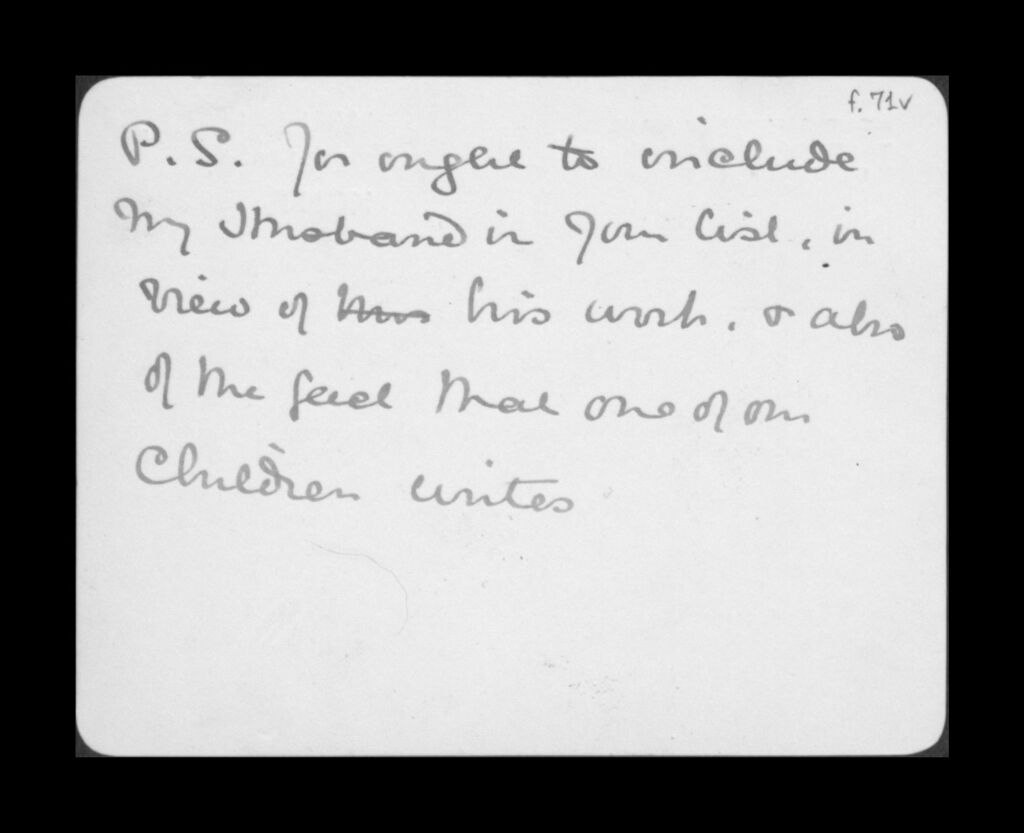 f. 71v
P.S. You ought to include
my Husband in your list, in
view of his work, & also
of the fact that one of our
Children writes